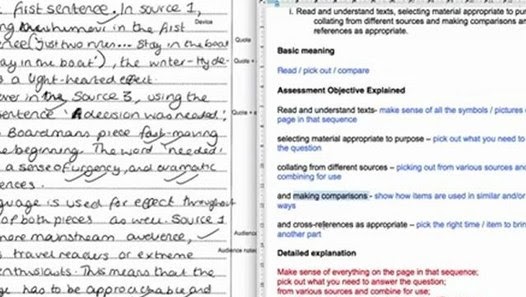 first sentence. In source 1,
humour in the first
Device
('just two men... Stay in the boat
Quote
stay in the boat'), the writer - Hyde-
Quote
a light-hearted effect.
in the Source 3, using the
sentence 'A decision was needed'
Quote
Boardmans piece fast-moving
the beginning. The word 'needed'
a sense of urgency, and dramatic
language is used for effect throughout
of both pieces as well. Source 1
more mainstream audience,
Audience
travel readers or extreme
Audience
enthusiasts. This means that the
has to be approachable and
i. Read and understand texts, selecting material appropriate to purpose
collating from different sources and making comparisons and
references as appropriate.
Basic meaning
Read / pick out / compare
Assessment Objective Explained
Read and understand texts- make sense of all the symbols / pictures
page in that sequence
selecting material appropriate to purpose – pick out what you need to
the question
collating from different sources – picking out from various sources and
combining for use
and making comparisons - show how items are used in similar and/or
ways
and cross-references as appropriate – pick the right time / item to bring
another part
Detailed explanation
Make sense of everything on the page in that sequence;
pick out what you need to answer the question;
from various sources and combine for use;